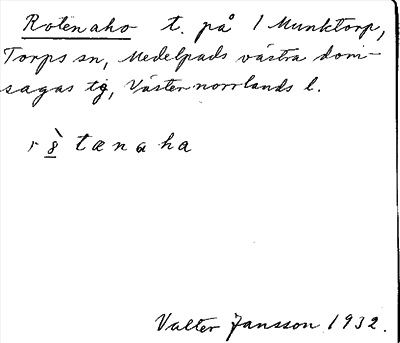 Rotenaho t. på 1 Munktorp,
Torps sn, Medelpads västra dom-
sagas tg, Västernorrlands l.
r 8̀ tænaha
Valter Jansson 1932.